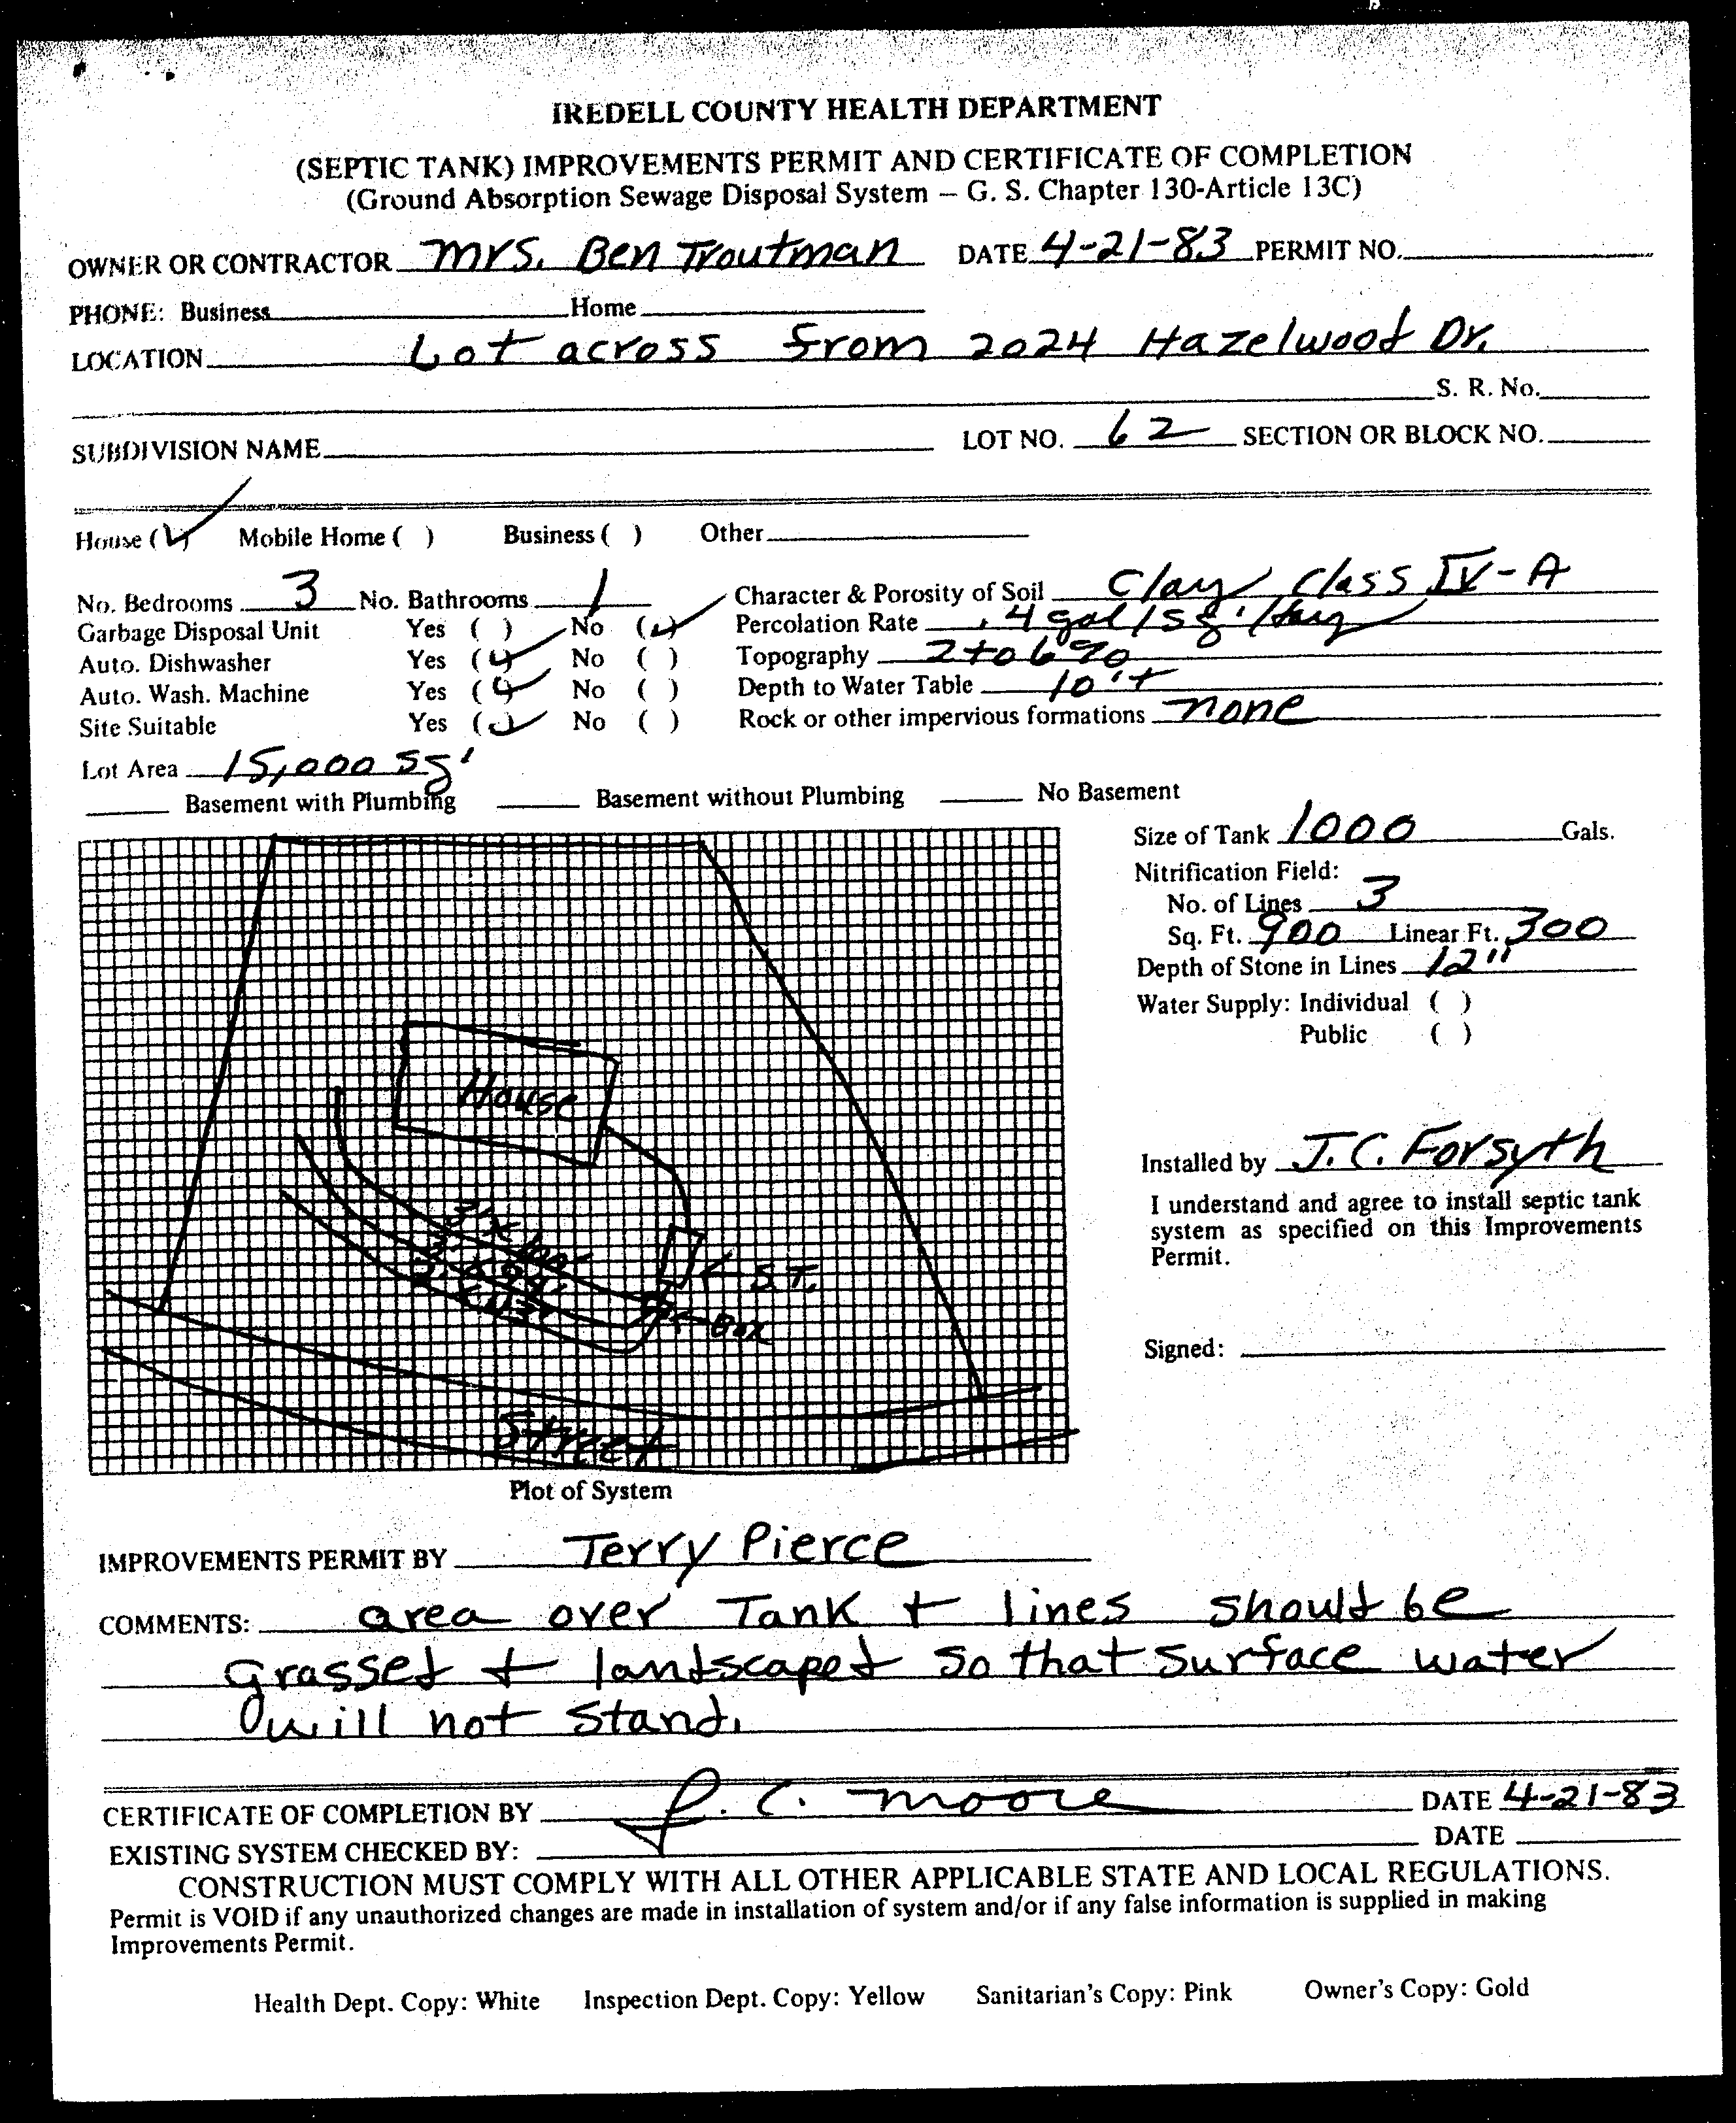 IREDELL COUNTY HEALTH DEPARTMENT
(SEPTIC TANK) IMPROVEMENTS PERMIT AND CERTIFICATE OF COMPLETION
(Ground Absorption Sewage Disposal System – G. S. Chapter 130-Article 13C)
OWNER OR CONTRACTOR Mrs. Ben Troutman DATE 4-21-83 PERMIT NO.
PHONE: Business Home
LOCATION Lot across from 2024 Hazelwood Dr.
S. R. No.
SUBDIVISION NAME LOT NO. 62 SECTION OR BLOCK NO.
House (✓) Mobile Home ( ) Business ( ) Other
No. Bedrooms 3 No. Bathrooms 1 Character & Porosity of Soil Clay Class IV-A
Garbage Disposal Unit Yes ( ) No (✓) Percolation Rate .4 gal/sq'/day
Auto. Dishwasher Yes (✓) No ( ) Topography 2 to 6%
Auto. Wash. Machine Yes (✓) No ( ) Depth to Water Table 10'+
Site Suitable Yes (✓) No ( ) Rock or other impervious formations none
Lot Area 15,000 sq'
Basement with Plumbing Basement without Plumbing No Basement
Size of Tank 1000 Gals.
Nitrification Field:
No. of Lines 3
Sq. Ft. 900 Linear Ft. 300
Depth of Stone in Lines 12"
Water Supply: Individual ( )
Public ( )
House
S.T.
Box
Street
Installed by J.C. Forsyth
I understand and agree to install septic tank
system as specified on this Improvements
Permit.
Signed:
Plot of System
IMPROVEMENTS PERMIT BY Terry Pierce
COMMENTS: area over Tank + lines should be
grassed + landscaped so that surface water
will not stand.
CERTIFICATE OF COMPLETION BY J. C. Moore DATE 4-21-83
EXISTING SYSTEM CHECKED BY: DATE
CONSTRUCTION MUST COMPLY WITH ALL OTHER APPLICABLE STATE AND LOCAL REGULATIONS.
Permit is VOID if any unauthorized changes are made in installation of system and/or if any false information is supplied in making
Improvements Permit.
Health Dept. Copy: White Inspection Dept. Copy: Yellow Sanitarian's Copy: Pink Owner's Copy: Gold